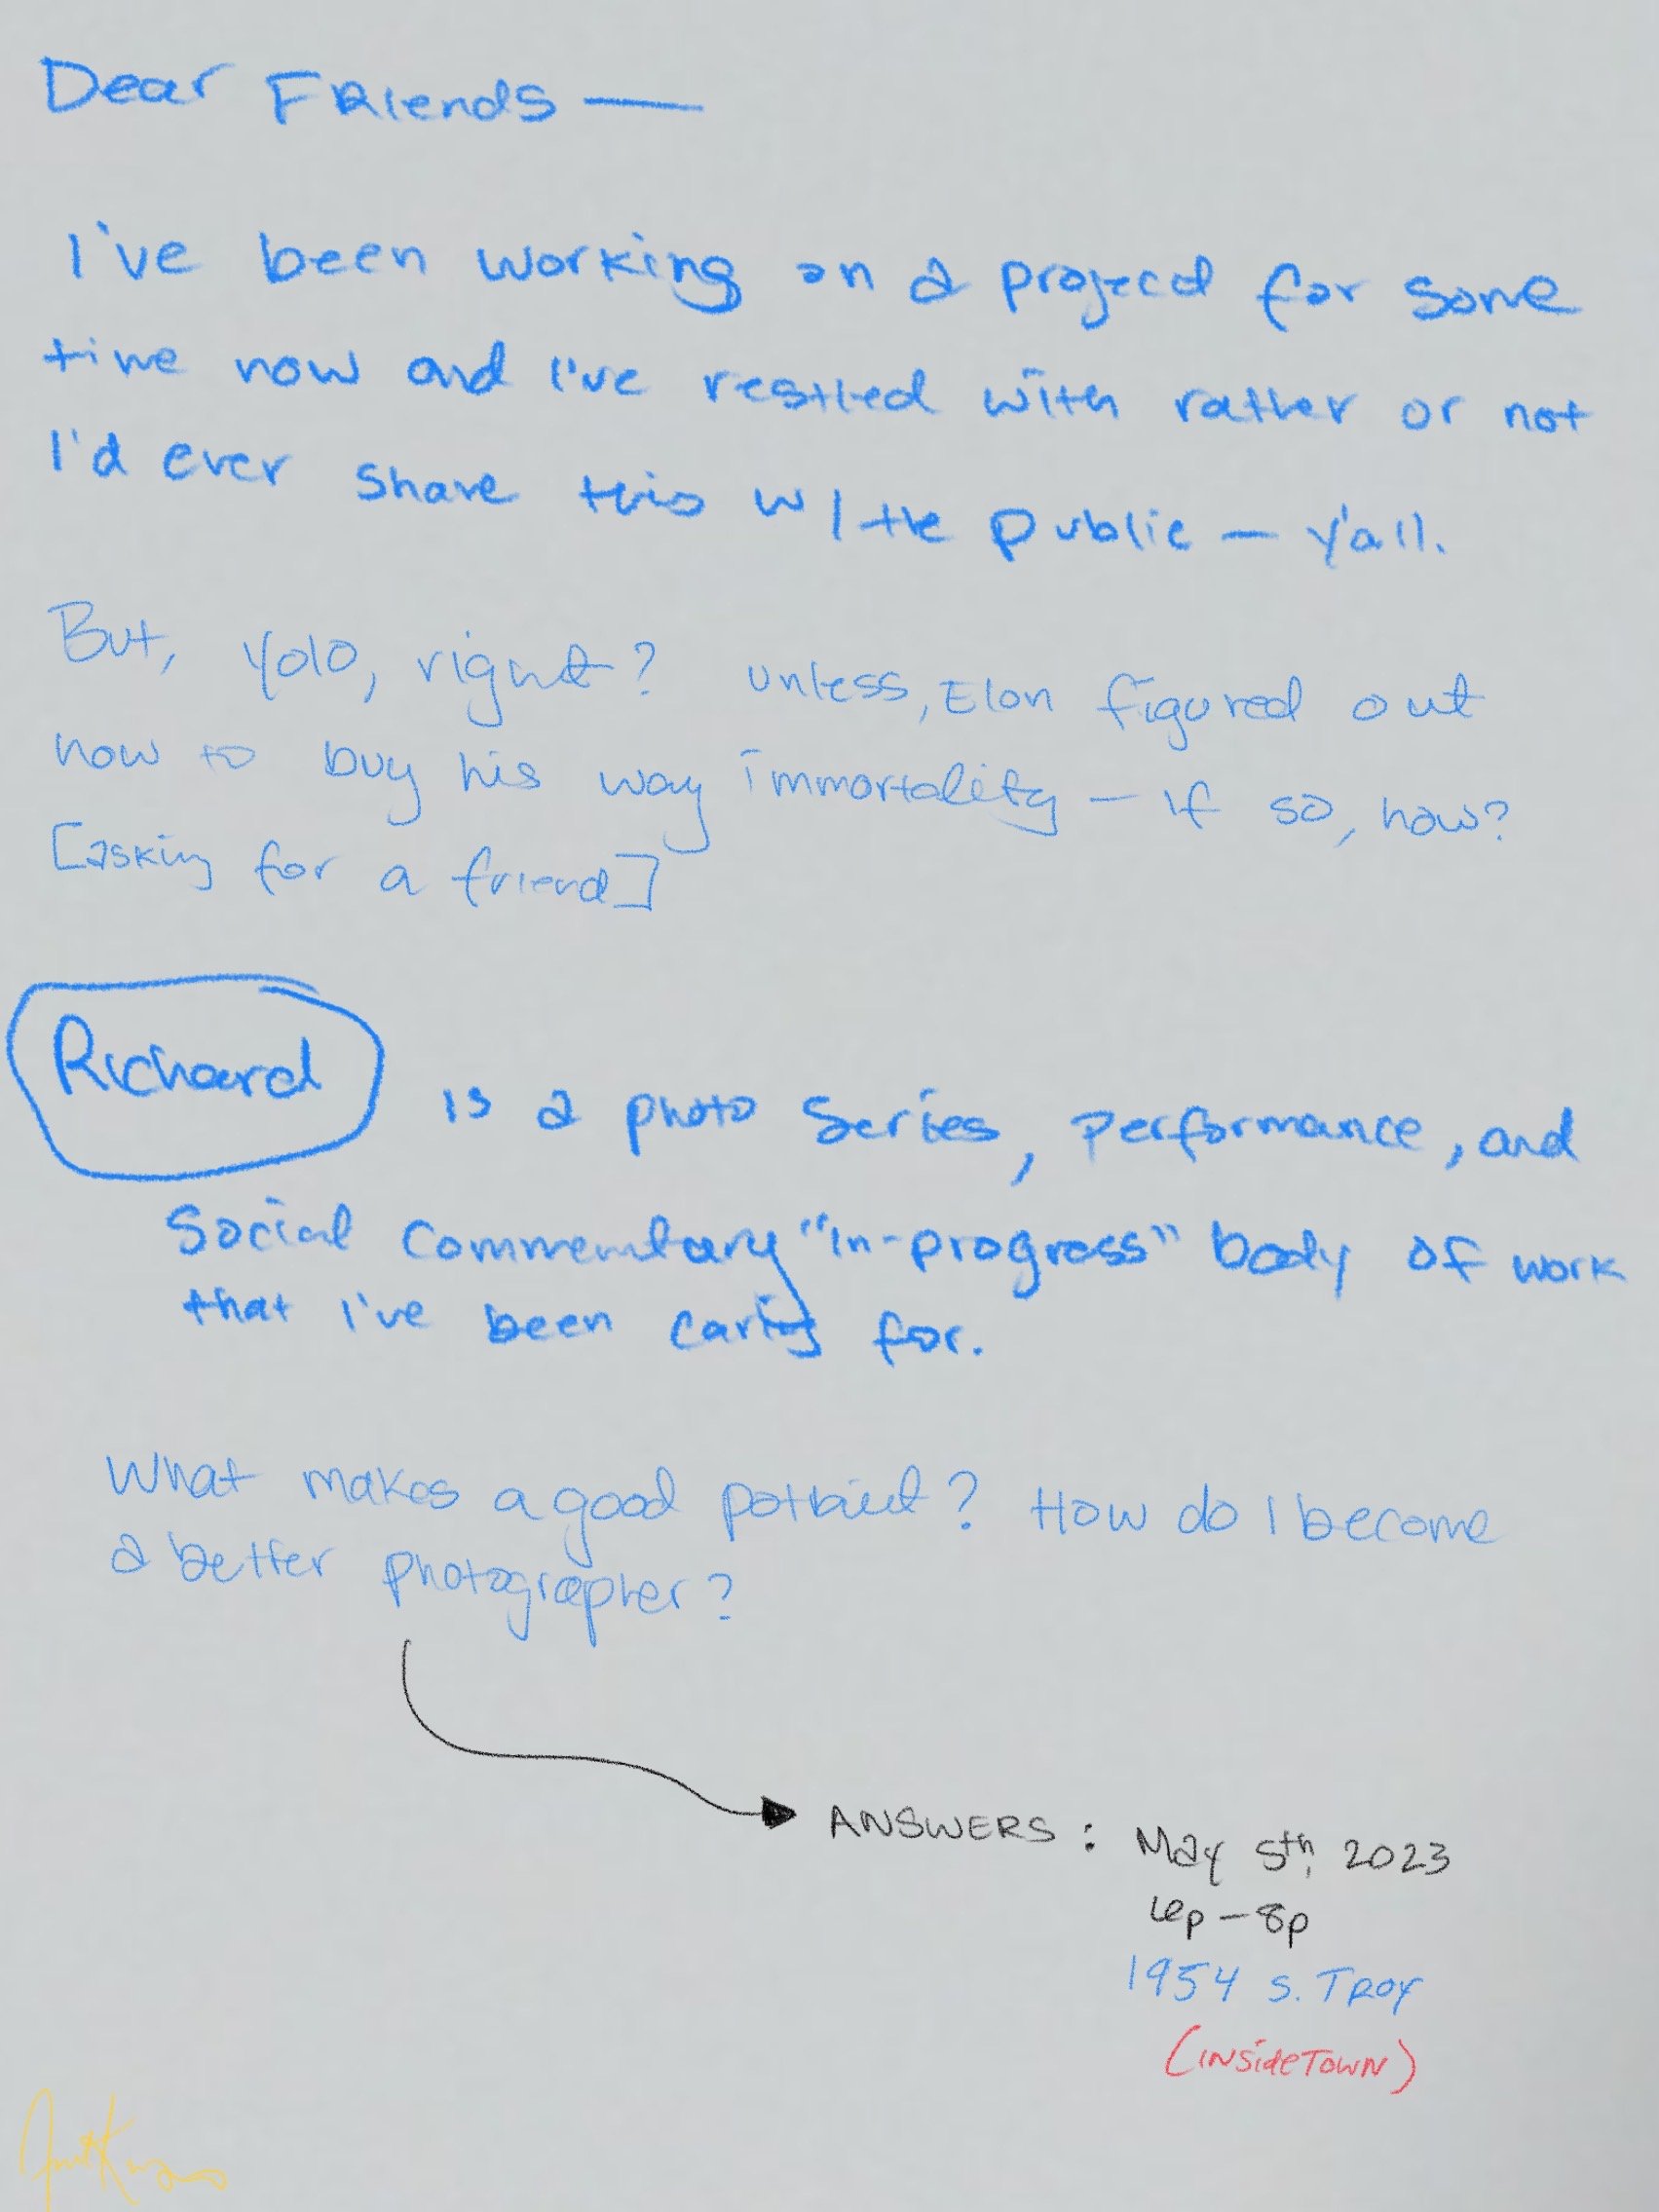 Dear Friends —
I've been working on a project for some
time now and I've restled with rather or not
I'd ever share this w/ the public — y'all.
But, yolo, right? unless, Elon figured out
how to buy his way immortality — if so, how?
[asking for a friend]
Richard is a photo series, performance, and
social commentary "in-progress" body of work
that I've been caring for.
What makes a good potrait? How do I become
a better photographer?
ANSWERS: May 5th, 2023
6p – 8p
1954 S. TROY
(INSIDETOWN)